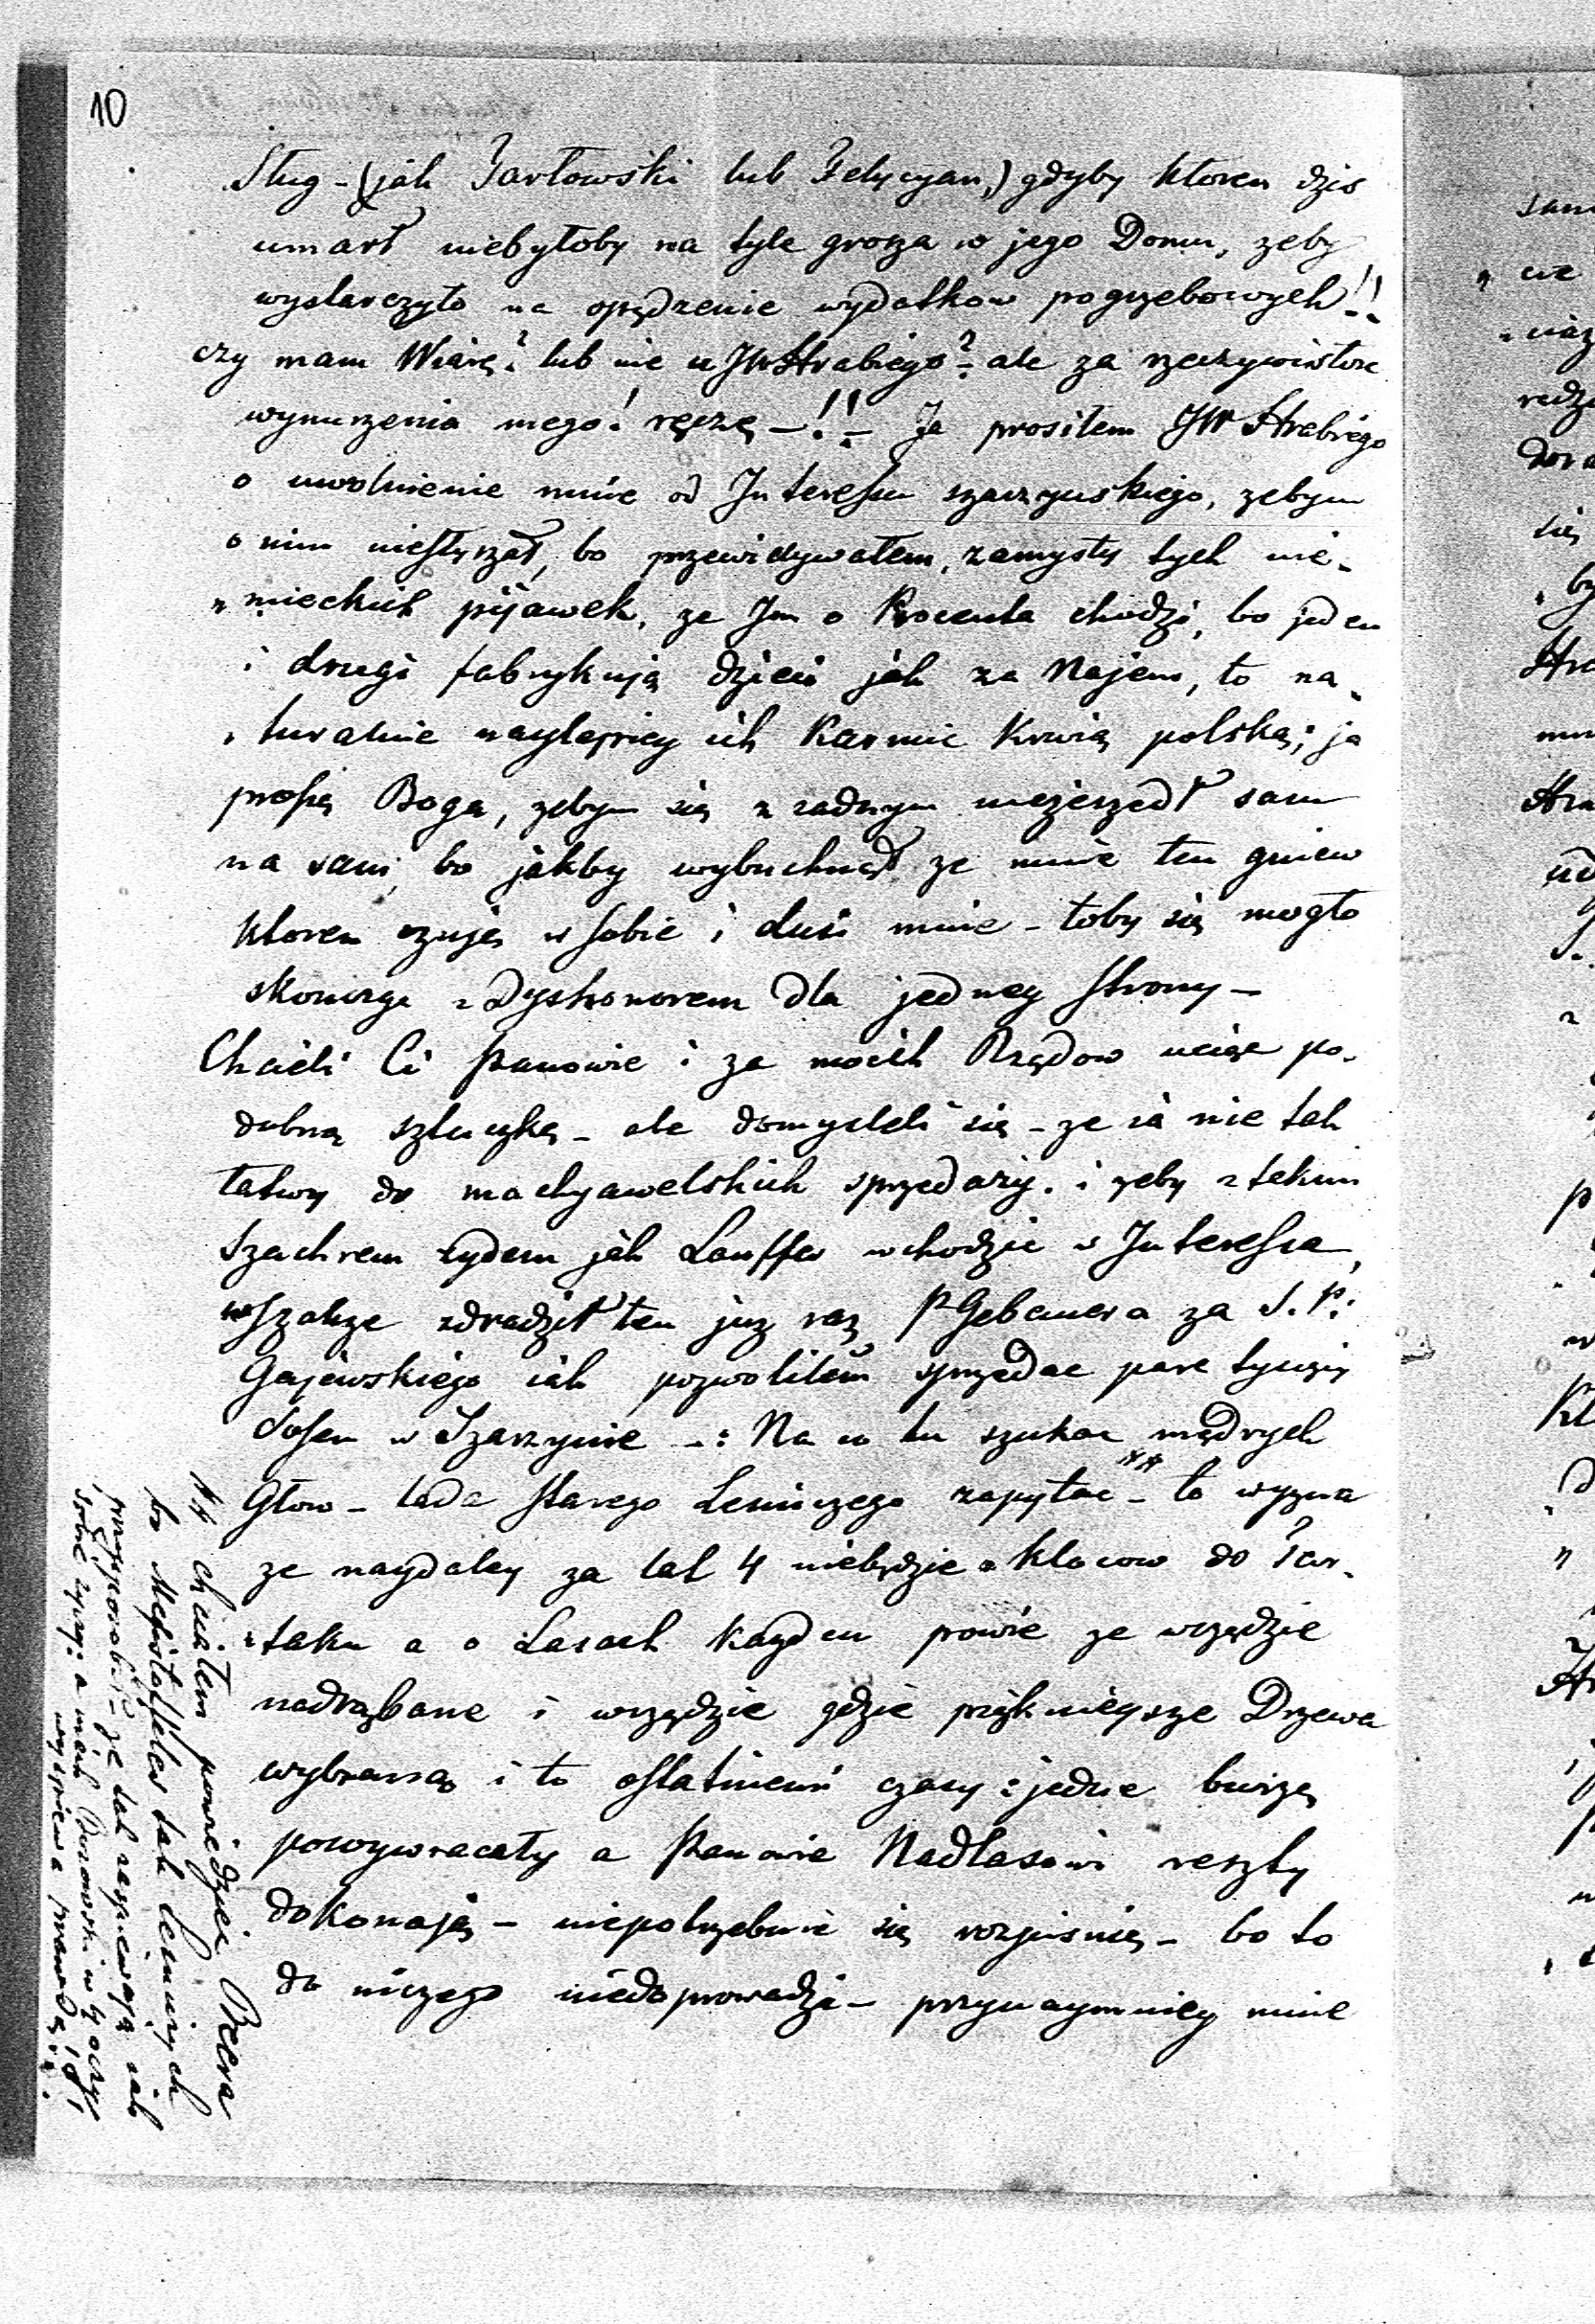 10
Sług – (jak Jarłowski lub Felicyan,) gdyby ktoren dzis
umarł niebyłoby na tyle grosza w jego Domu, zeby
wystarczyło na opędzenie wydatkow pogrzebowych!!
czy mam Wiarę? lub nie u JWHrabiego? ale za rzeczywistosc
wynurzenia mego! ręczę –!!– Ja prosiłem JW Hrabiego
o uwolnienie mnie od Interessu szarzynskiego, zebym
o nim niesłyszał, bo przewidywałem, zamysły tych nie-
„mieckich pijawek, ze Im o Procenta chodzi, bo jeden
i drugi fabrykują dzieci jak za Najem, to na-
„turalnie naylepiey ich Karmic Krwią polską; ja
proszę Boga, zebym się z zadnym niezeszedł sam
na sam, bo jakby wybuchnął ze mnie ten gniew
ktoren czuję w sobie i dusi mnie – toby się mogło
skonczyc z Dyshonorem dla jedney strony –
Chcieli Ci Panowie i za moich Rządow uciąc po-
dobną sztuczkę – ale domysleli się – ze ia nie tak
łatwy do machyawelskich sprzedazy. i zeby z takim
Szachrem zydem jak Lauffer wchodzic w Interessa,
wszakze zdradził ten juz raz P Gebauera za S. P:
Gajewskiego iak pozwoliłem sprzedac pare tysięcy
Sosen w Szarzynie –: Na co tu szukac mądrych
Głow – lada starego Lesniczego zapytac – to wyzna
ze naydaley za lat 4 niebędzie Klocow do Tar-
„taku a o Lasach Kazden powie ze wszędzie
nadrąbane i wszędzie gdzie pięknieysze Drzewa
wybrano i to ostatniemi czasy: jedne burze
powywracały a Panowie Nadlasowi reszty
dokonają – niepotrzebnie się rozpisuię – bo to
do niczego niedoprowadzi – przynaymniey mnie
chciałem powiedziec
bo Mefistofeles tak Lesniczych
ze tak zaspiewają iak
wyspiewa prawdę!!